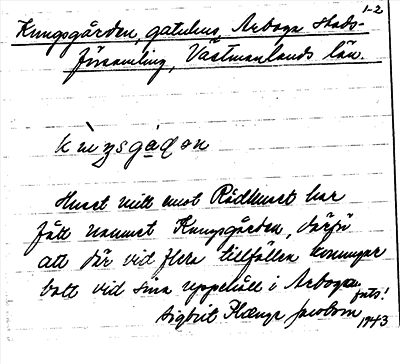 1-2
Kungsgården, gatuhus, Arboga stads-
församling, Västmanlands län.
Huset mitt emot Rådhuset har
fått namnet Kungsgården, därför
att där vid flera tillfällen konungar
bott vid sina uppehåll i Arboga.
Sigbrit Plænge Jacobson
1943